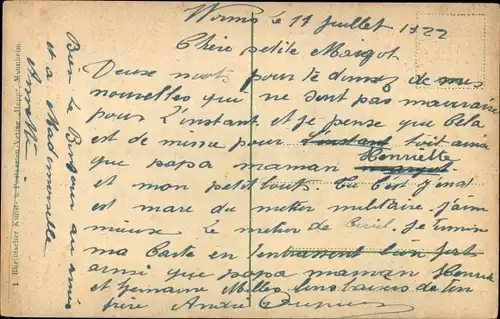 Worms le 11 Juillet 1922
Chère petite Margot
Deux mots pour te donnez de mes
nouvelles qui ne sont pas mauvaise
pour l'instant et je pense que Cela
est de même pour l'instant toit ainsi
que papa maman Henriette
et mon petit Louis. Tu C'est j'ens
est mare du metier militaire. J'aime
mieux le metier de Civil. Je termine
ma Carte en t'embrassent bien fort
ainsi que papa maman Henriette
et Germaine Milles baisers de ton
frère André
Bien le Bonjour au amis
et a Mademoiselle
Annette